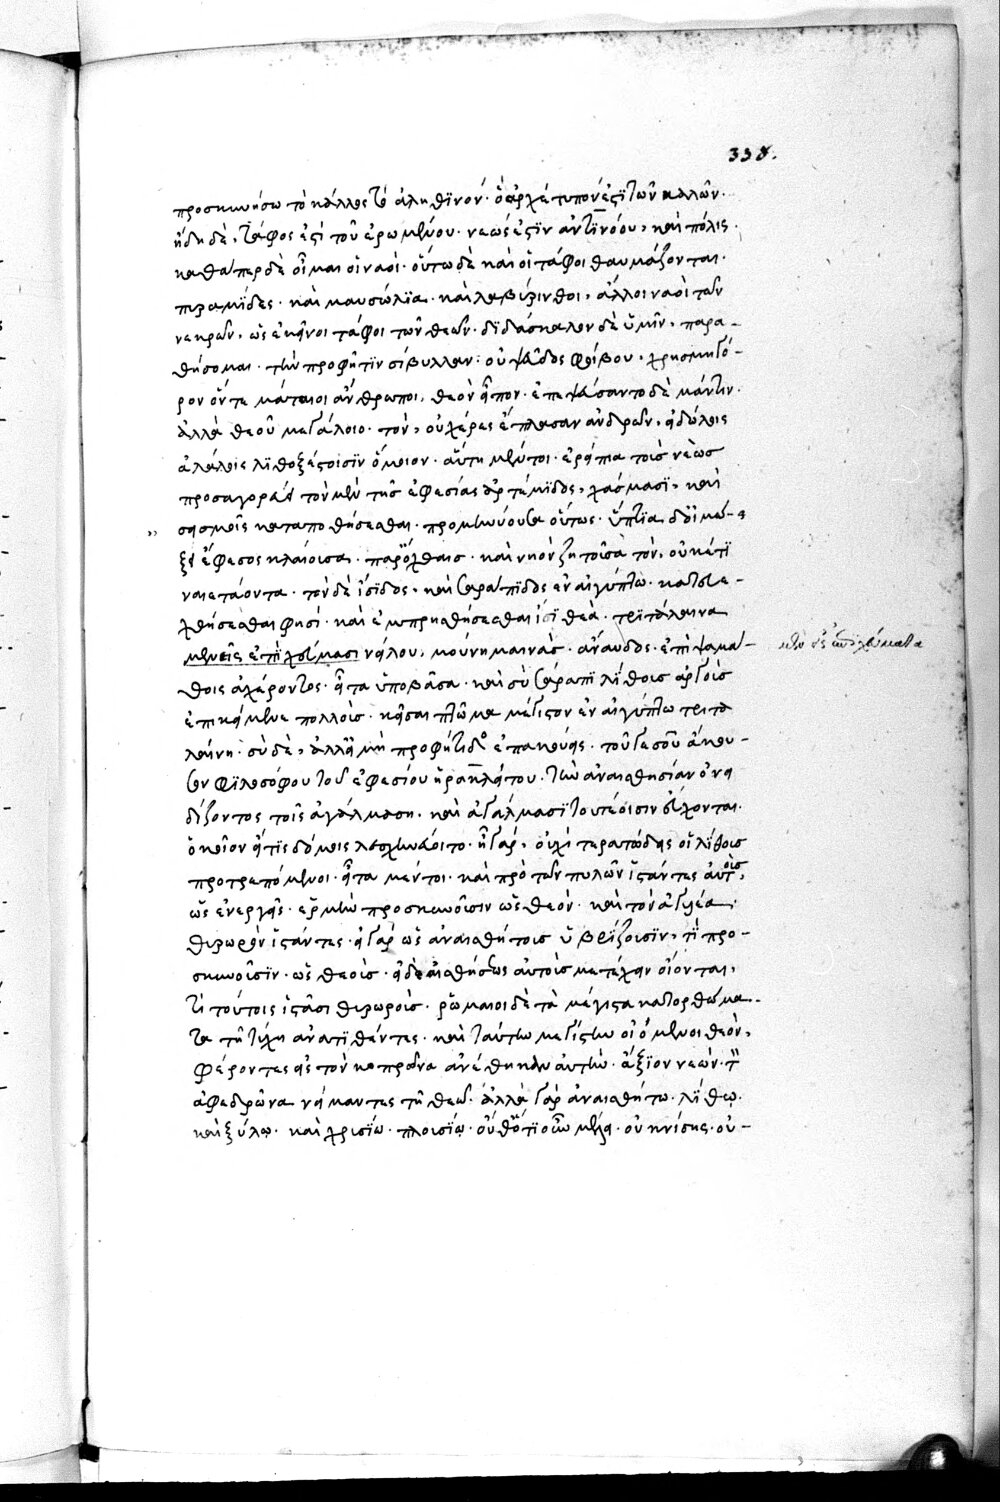 338.
προσκυνήσω τὸ κάλλος τὸ ἀληθϊνόν· ὃ ἀρχέτυπόν ἐστϊ τῶν καλῶν·
ἤδη δὲ, τάφος ἐστὶ τοῦ ἐρωμένου· νεώς ἐστϊν ἀντϊνόου, καὶ πόλις·
καθάπερ δὲ οἶμαι οἱ ναοὶ· οὕτω δὲ καὶ οἱ τάφοι θαυμάζονται·
πυραμίδες· καὶ μαυσώλϊα· καὶ λαβύρινθοι, ἄλλοι ναοὶ τῶν
νεκρῶν, ὡς ἐκεῖνοι τάφοι τῶν θεῶν· δϊδάσκαλον δὲ ὑμῖν, παρα-
θήσομαι· τὴν προφῆτϊν σίβυλλαν: οὐ ψευδοῦς φοίβου, χρησμηγό-
ρον ὅν τε μάταιοι ἄνθρωποι, θεὸν εἶπον· ἐπεψεύσαντο δὲ μάντιν·
ἀλλὰ θεοῦ μεγάλοιο· τὸν, οὐ χέρες ἔπλασαν ἀνδρῶν, εἰδώλοις
ἀλάλοις λϊθοξέστοισϊν ὅμοιον· αὕτη μέντοι· ἐρείπια τοὺς νεὼς
προσαγορεύει τὸν μὲν τῆς ἐφεσίας ἀρτέμϊδος, χάσμασϊ, καὶ
σεισμοῖς καταποθήσεσθαι· προμηνύουσα οὕτως· ὕπτϊα δ' οἰμώ-
ξει ἔφεσος κλαίουσα· παρ' ὄχθαις· καὶ νηὸν ζητοῦσα τὸν, οὐκέτϊ
ναιετάοντα· τὸν δὲ ἴσϊδος, καὶ σαράπϊδος ἐν αἰγύπτω· κατενε-
χθήσεσθαι φησὶ· καὶ ἐμπρησθήσεσθαι ἰσϊ θεὰ· τριτάλαινα
μενεῖς ἐπὶ χεύμασι νείλου, μούνη μαινὰς· ἄναυδος· ἐπὶ ψαμά-
θοις ἀχέροντος· εἶτα ὑποβᾶσα· καὶ σὺ σάραπϊ λίθους ἀργοὺς
ἐπικείμενε πολλοὺς· κεῖσαι πτῶμα μέγιστον ἐν αἰγύπτω τριτα
λαίνη· σὺ δὲ, ἀλλ' εἰ μὴ προφήτιδος ἐπακούεις· τοῦ γε σοῦ ἄκου-
σον φϊλοσόφου τοῦ ἐφεσίου ἡρακλείτου· τὴν ἀναισθησίαν ὀνει
δίζοντος τοῖς ἀγάλμασι· καὶ ἀγάλμασϊ τουτέοισιν εὔχονται·
ὁκοῖον εἴ τις δόμοις λεσχηνεύοιτο· ἢ γὰρ, οὐχὶ τερατώδεις οἱ λίθους
προτρεπόμενοι· εἶτα μέντοι· καὶ πρὸ τῶν πυλῶν ἱστάντες αὐτοὺς,
ὡς ἐνεργεῖς· ἑρμῆν προσκυνοῦσιν ὡς θεὸν· καὶ τὸν ἀγυιέα·
θυρωρὸν ἱστάντες· εἰ γὰρ ὡς ἀναισθήτους ὑβρίζουσϊν, τί προ-
σκυνοῦσϊν· ὡς θεοὺς· εἰ δὲ αἰσθήσεως αὐτοὺς μετέχειν οἴονται,
τί τούτους ἱστᾶσι θυρωροὺς· ῥωμαῖοι δὲ τὰ μέγιστα κατορθώμα-
τα τῇ τύχη ἀνατϊθέντες· καὶ ταύτην μεγίστην οἰόμενοι θεὸν,
φέροντες εἰς τὸν κοπρῶνα ἀνέθηκαν αὐτὴν· ἄξϊον νεὼν· τὸν
ἀφεδρῶνα νείμαντες τῇ θεῶ· ἀλλὰ γὰρ ἀναισθήτω· λίθῳ·
καὶ ξύλῳ· καὶ χρυσίω· πλουσίῳ· οὐθ' ὁτϊοῦν μέλει· οὐ κνίσης· οὐ-